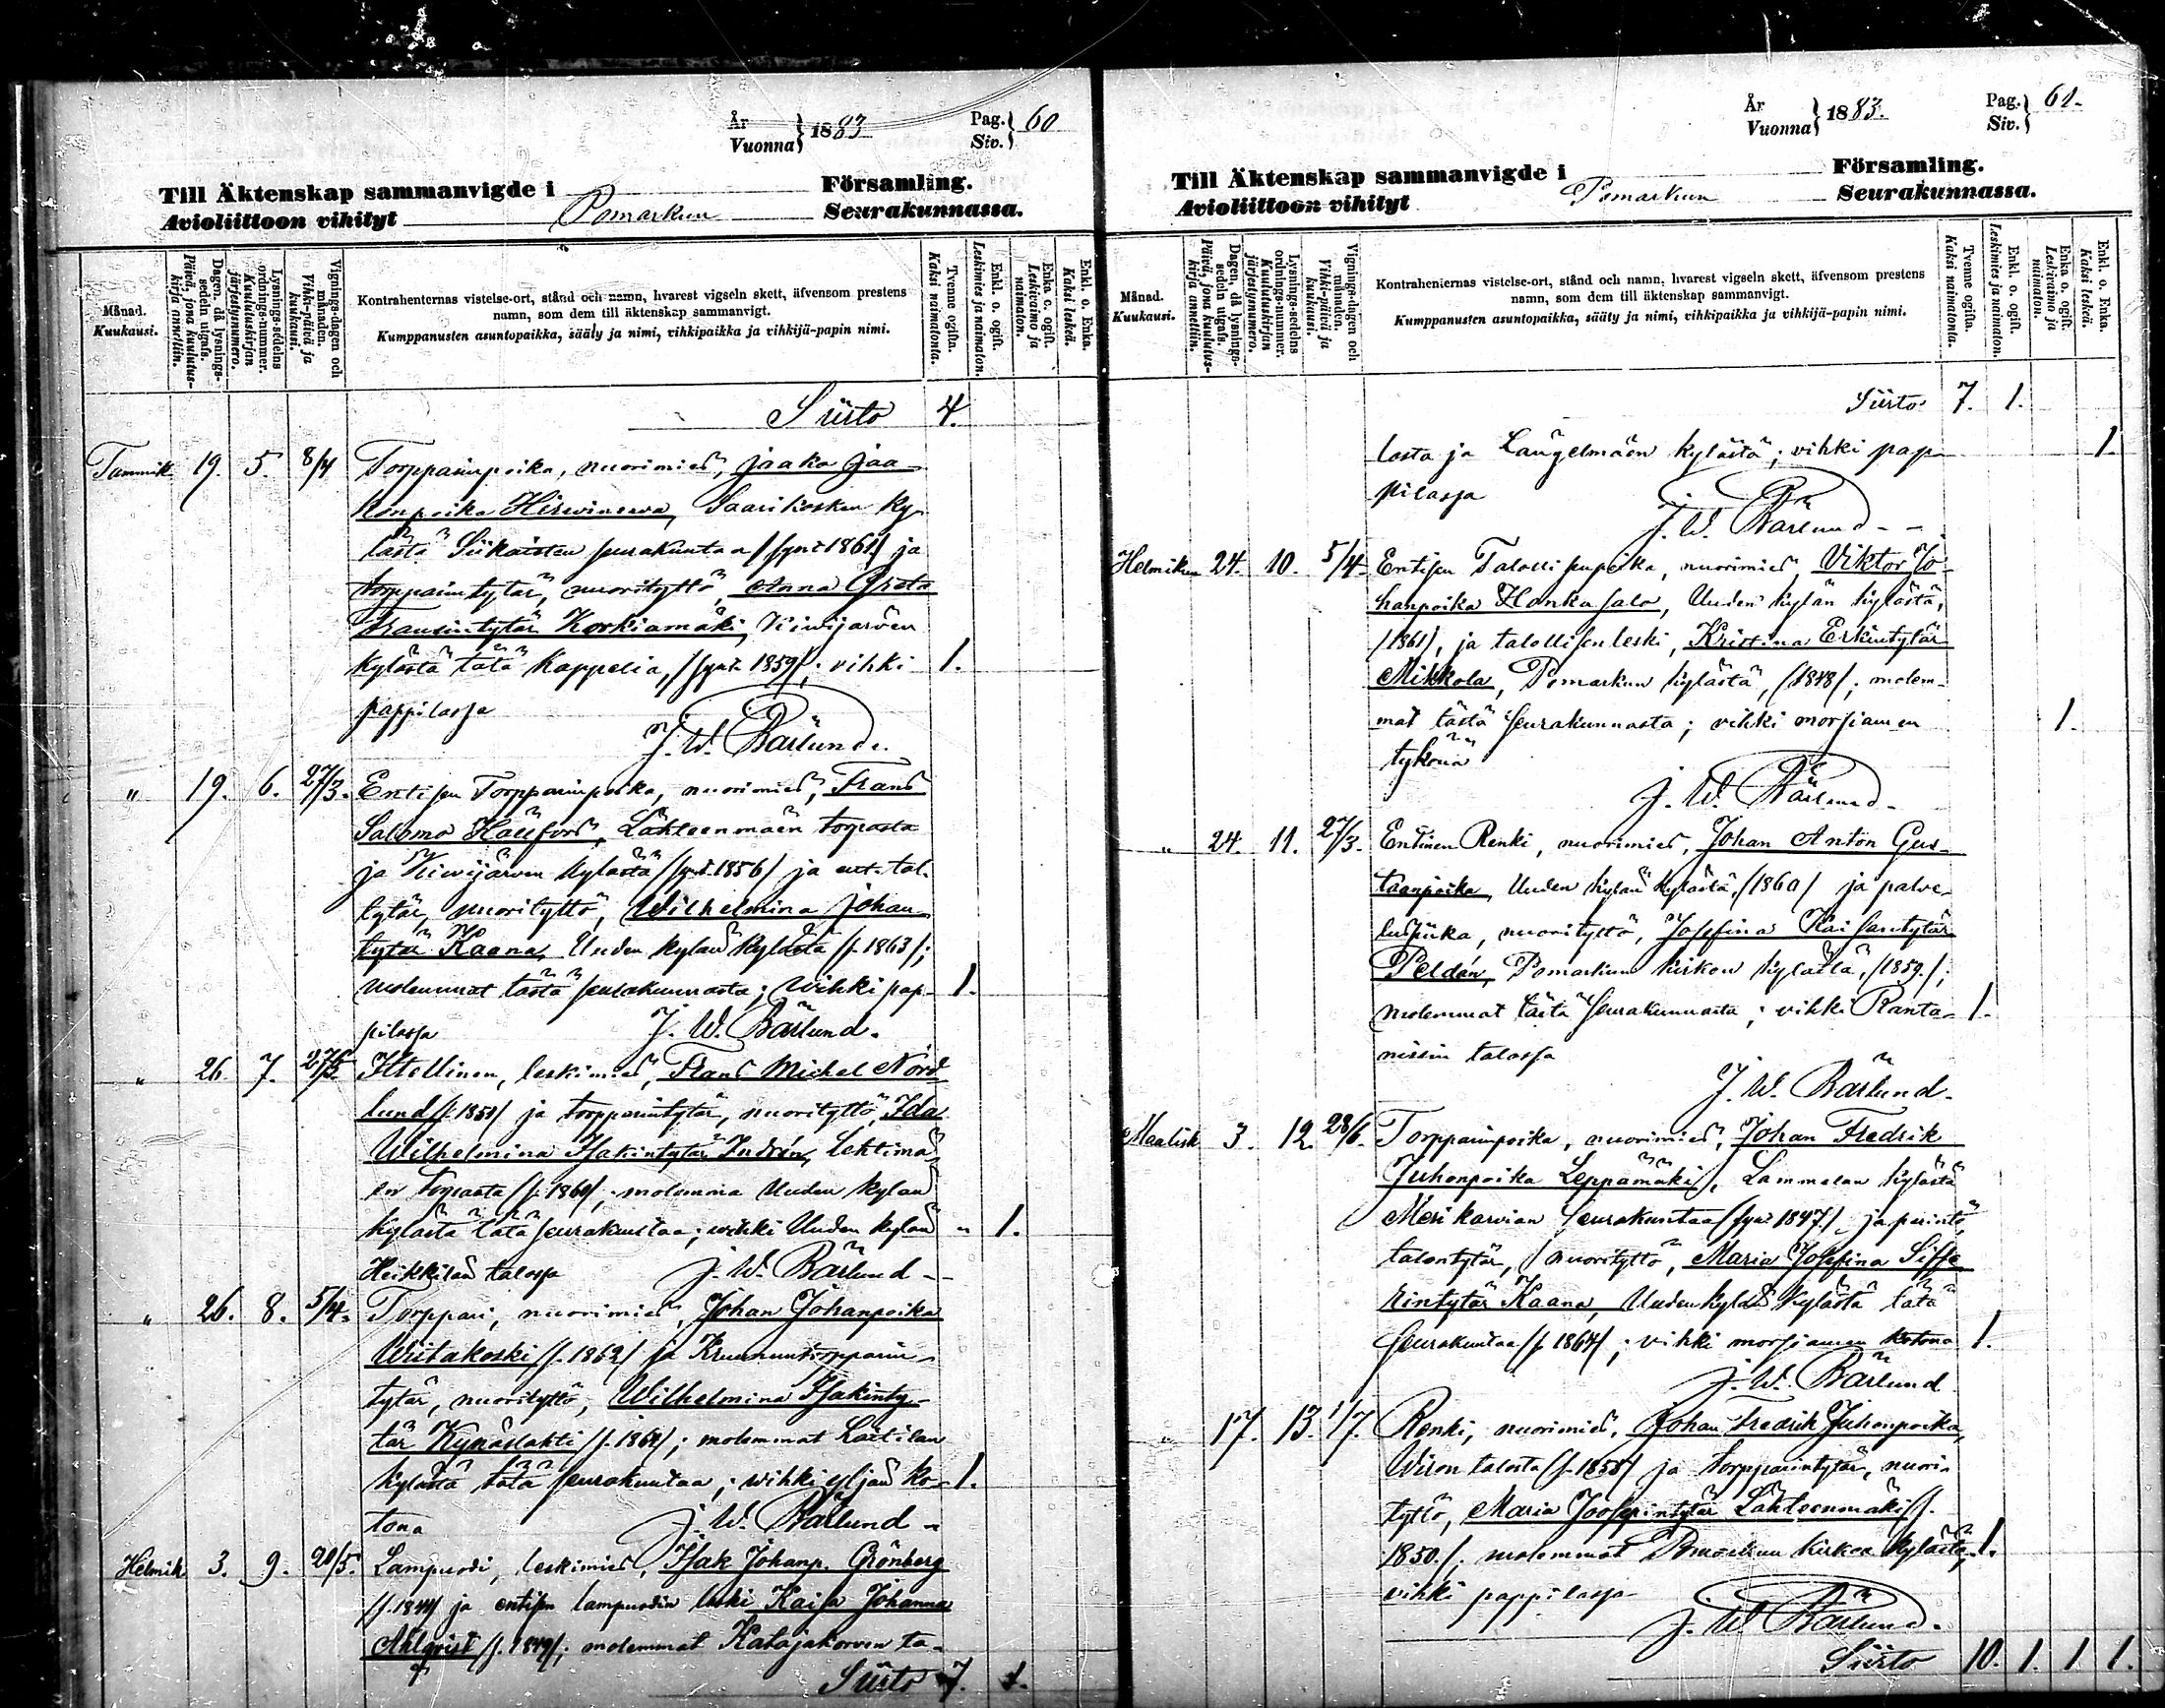 År
Vuonna } 1883 Pag.
Siv. } 60
Till Äktenskap sammanvigde i Församling.
Avioliittoon vihityt Pomarkun Seurakunnassa.
Månad.
Kuukausi.
Dagen, då lysnings-sedeln utgafs.
Päivä, jona kuulutus-kirja annettiin.
Lysnings-sedelns ordnings-nummer.
Kuulutuskirjan järjestysnumero.
Vignings-dagen och månaden.
Vihki-päivä ja kuukausi.
Kontrahenternas vistelse-ort, stånd och namn, hvarest vigseln skett, äfvensom prestens
namn, som dem till äktenskap sammanvigt.
Kumppanusten asuntopaikka, sääty ja nimi, vihkipaikka ja vihkijä-papin nimi.
Tvenne ogifta.
Kaksi naimatonta.
Enkl. o. ogift.
Leskimies ja naimaton.
Enka o. ogift.
Leskivaimo ja naimaton.
Enkl. o. Enka.
Kaksi leskeä.
Siirto 4.
Tammik 19. 5. 8/4 Torpparinpoika, nuorimies, Jaako Jaa-
konpoika Hirwinewa, Saarikosken ky-
lästä Siikaisten seurakuntaa (synt 1861) ja
torpparintytär, nuorityttö, Anna Greta
Fransintytär Korkiamäki, Kiwijärven
kylästä tätä Kappelia, (synt. 1859); vihki 1.
pappilassa
J. W. Bärlund.
" 19. 6. 27/3. Entisen Torpparinpoika, nuorimies, Frans
Salomo Hällfors, Lähteenmäen torpasta
ja Kiwijärven kylästä (synt. 1856) ja ent. tal.
tytär, nuorityttö, Wilhelmina Johan-
tytär Kaana, Uuden kylän kylästä (s. 1863);
molemmat tästä seurakunnasta; wihki pap- 1.
pilassa J. W. Bärlund.
" 26. 7. 27/3 Itsellinen, leskimies, Frans Michel Nord-
lund ja torpparintytär, nuorityttö, Ida
Wilhelmina Isakintytär Indrén, Lehtimä-
en torpasta (s. 1860); molemma Uuden kylän
kylästä tätä seurakuntaa; wihki Uuden kylän " 1.
Heikkilän talossa J. W. Bärlund
" 26. 8. 5/4. Torppari, nuorimies, Johan Johanpoika
Wiitakoski (s. 1862) ja Kruununtorpparin-
tytär, nuorityttö, Wilhelmina Isakinty-
tär Kynäslahti; molemmat Laitilan
kylästä tätä seurakuntaa; wihki yljän ko- 1.
tona J. W. Bärlund
Helmik 3. 9. 20/5. Lampuodi, leskimies, Isak Johanp. Grönberg
ja entisen lampuodin leski Kaisa Johanna
Ahlqvist (s. 1849); molemmat Katajakorven ta-
Siirto 7. 1.
År
Vuonna } 1883. Pag.
Siv. } 61.
Till Äktenskap sammanvigde i Församling.
Avioliittoon vihityt Pomarkun Seurakunnassa.
Månad.
Kuukausi.
Dagen, då lysnings-sedeln utgafs.
Päivä, jona kuulutus-kirja annettiin.
Lysnings-sedelns ordnings-nummer.
Kuulutuskirjan järjestysnumero.
Vignings-dagen och månaden.
Vihki-päivä ja kuukausi.
Kontrahenternas vistelse-ort, stånd och namn, hvarest vigseln skett, äfvensom prestens
namn, som dem till äktenskap sammanvigt.
Kumppanusten asuntopaikka, sääty ja nimi, vihkipaikka ja vihkijä-papin nimi.
Tvenne ogifta.
Kaksi naimatonta.
Enkl. o. ogift.
Leskimies ja naimaton.
Enka o. ogift.
Leskivaimo ja naimaton.
Enkl. o. Enka.
Kaksi leskeä.
Siirto 7. 1.
losta ja Längelmäen kylästä; vihki pap- 1.
pilassa
J. W. Bärlund
Helmikuu 24. 10. 5/4 Entisen Talollisenpoika, nuorimies, Viktor Jo-
hanpoika Honkasalo, Uuden kylän kylästä,
(1861), ja talollisen leski, Kristina Erkintytär
Mikkola, Pomarkun kylästä, (1848); molem-
mat tästä seurakunnasta; vihki morsiamen 1.
tykönä
J. W. Bärlund
" 24. 11. 27/3. Entinen Renki, nuorimies, Johan Anton Gus-
taanpoika, Uuden kylän kylästä, (1860) ja palve-
luspiika, nuorityttö, Josefina Kaisantytär
Peldán, Pomarkun kirkon kylästä, (1859.);
molemmat tästä seurakunnasta; vihki Ranta- 1.
nissin talossa
J. W. Bärlund.
Maalisk 3. 12. 28/6. Torpparinpoika, nuorimies, Johan Fredrik
Juhonpoika Leppämäki, Lammelan kylästä
Merikarvian seurakuntaa (syn 1847.) ja perintö-
talontytär, nuorityttö, Maria Josefina Siffe-
rintytär Kaana, Uudenkylän kylästä tätä
seurakuntaa (s 1864); vihki morsiamen kotona 1.
J. W. Bärlund
" 17. 13. 1/7. Renki, nuorimies, Johan Fredrik Juhonpoika,
Wiron talosta (s. 1858) ja torpparintytär, nuori-
tyttö, Maria Joosepintytär Lähteenmäki (s.
1850.). molemmat Pomarkun kirkon kylästä, 1.
vihki pappilassa
J. W. Bärlund.
Siirto 10. 1. 1 1.